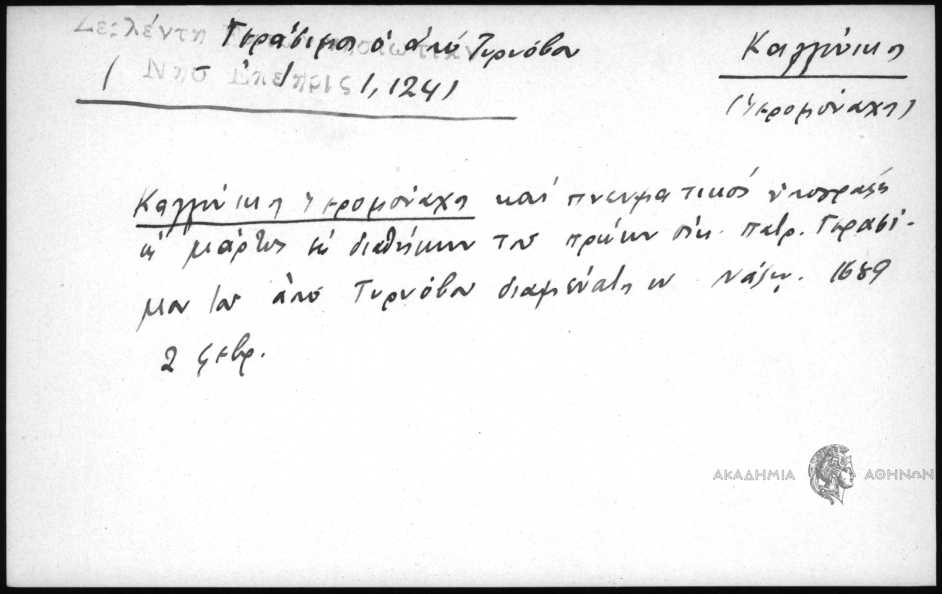 Ζερλέντη Γεράσιμος ὁ ἀπό Τυρνόβου
( Νησ Ἐπετηρις 1, 124)
Καλλίνικος
(ἱερομόναχος)
Καλλίνικος ἱερομόναχος καί πνευματικός ὑπογράφει
ὡς μάρτυς ἐν διαθήκῃ του πρώην οἰκ. πατρ. Γερασί-
μου του ἀπό Τυρνόβου διαμένοντος ἐν Νάξῳ. 1689
2 φεβρ.
ΑΚΑΔΗΜΙΑ ΑΘΗΝΩΝ